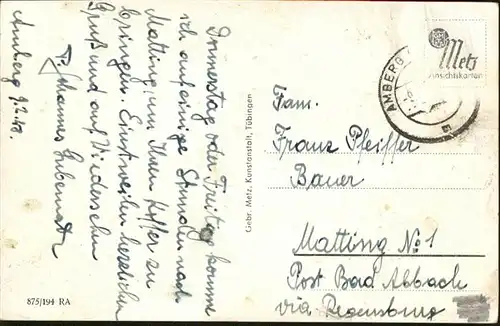 Donnerstag oder Freitag komme
ich auf einige Stunden nach
Matting, um Ihnen Koffer zu
bringen. Einstweilen herzlichen
Gruß und auf Wiedersehn
P. Johannes
Amberg 9.2.48.
875/194 RA
Gebr. Metz, Kunstanstalt, Tübingen
Metz
Ansichtskarten
AMBERG
Fam.
Franz Pfeiffer
Bauer
Matting No 1
Post Bad Abbach
via Regensburg